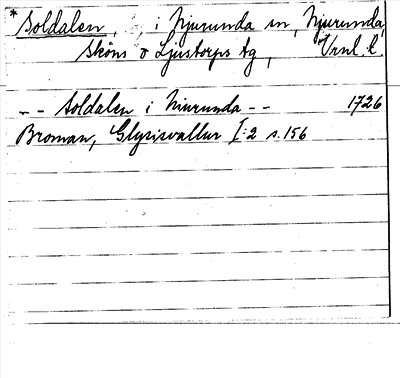 * Soldalen, , i Njurunda sn, Njurunda,
Sköns o Ljustorps tg, Vrnl. l.
-- Soldalen i Niurunda -- 1726
Broman, Glysisvallur I:2 s. 156